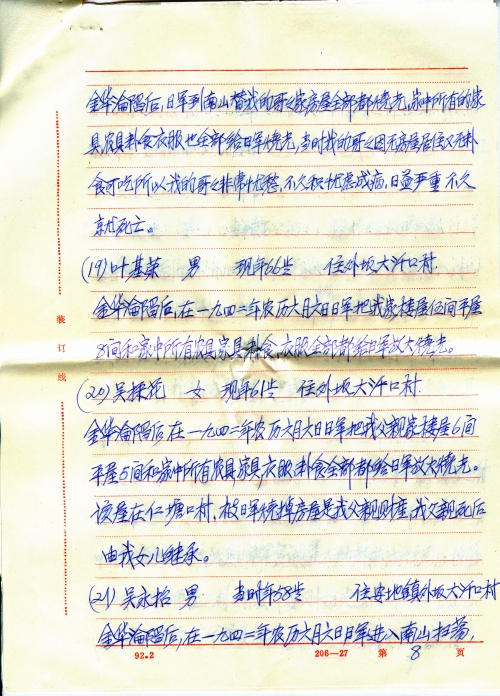 金华沦陷后,日军到南山楷我的哥々家房屋全部都烧光,家中所有的家
具,农具,朴食衣服也全部给日军烧光,当时我的哥々因无房屋居住又无朴
食可吃所以我的哥々非常忧愁,不久积忧虑成病,日益严重不久
就死亡。
(19)叶基荣 男 现年66岁 住外坂大沂口村
金华沦陷后,在一九四二年农历六月六日日军把我家楼屋12间平屋
8间和家中所有农具家具朴食,衣服全部都给日军放火烧光。
(20)吴採花 女 现年61岁 住外坂大沂口村
金华沦陷后在一九四二年农历六月六日日军把我父親家楼屋6间
平屋5间和家中所有农具家具,衣服朴食全部都给日军放火烧光。
该屋在仁塘口村,被日军烧掉房屋是我父親财產,我父親死后
由我女儿继承。
(21)吴永招 男 当时年58岁 住安地镇外坂大沂口村
金华沦陷后,在一九四二年农历六月六日日军进入南山扫荡,
装订线
92.2 206—27 第 8 页